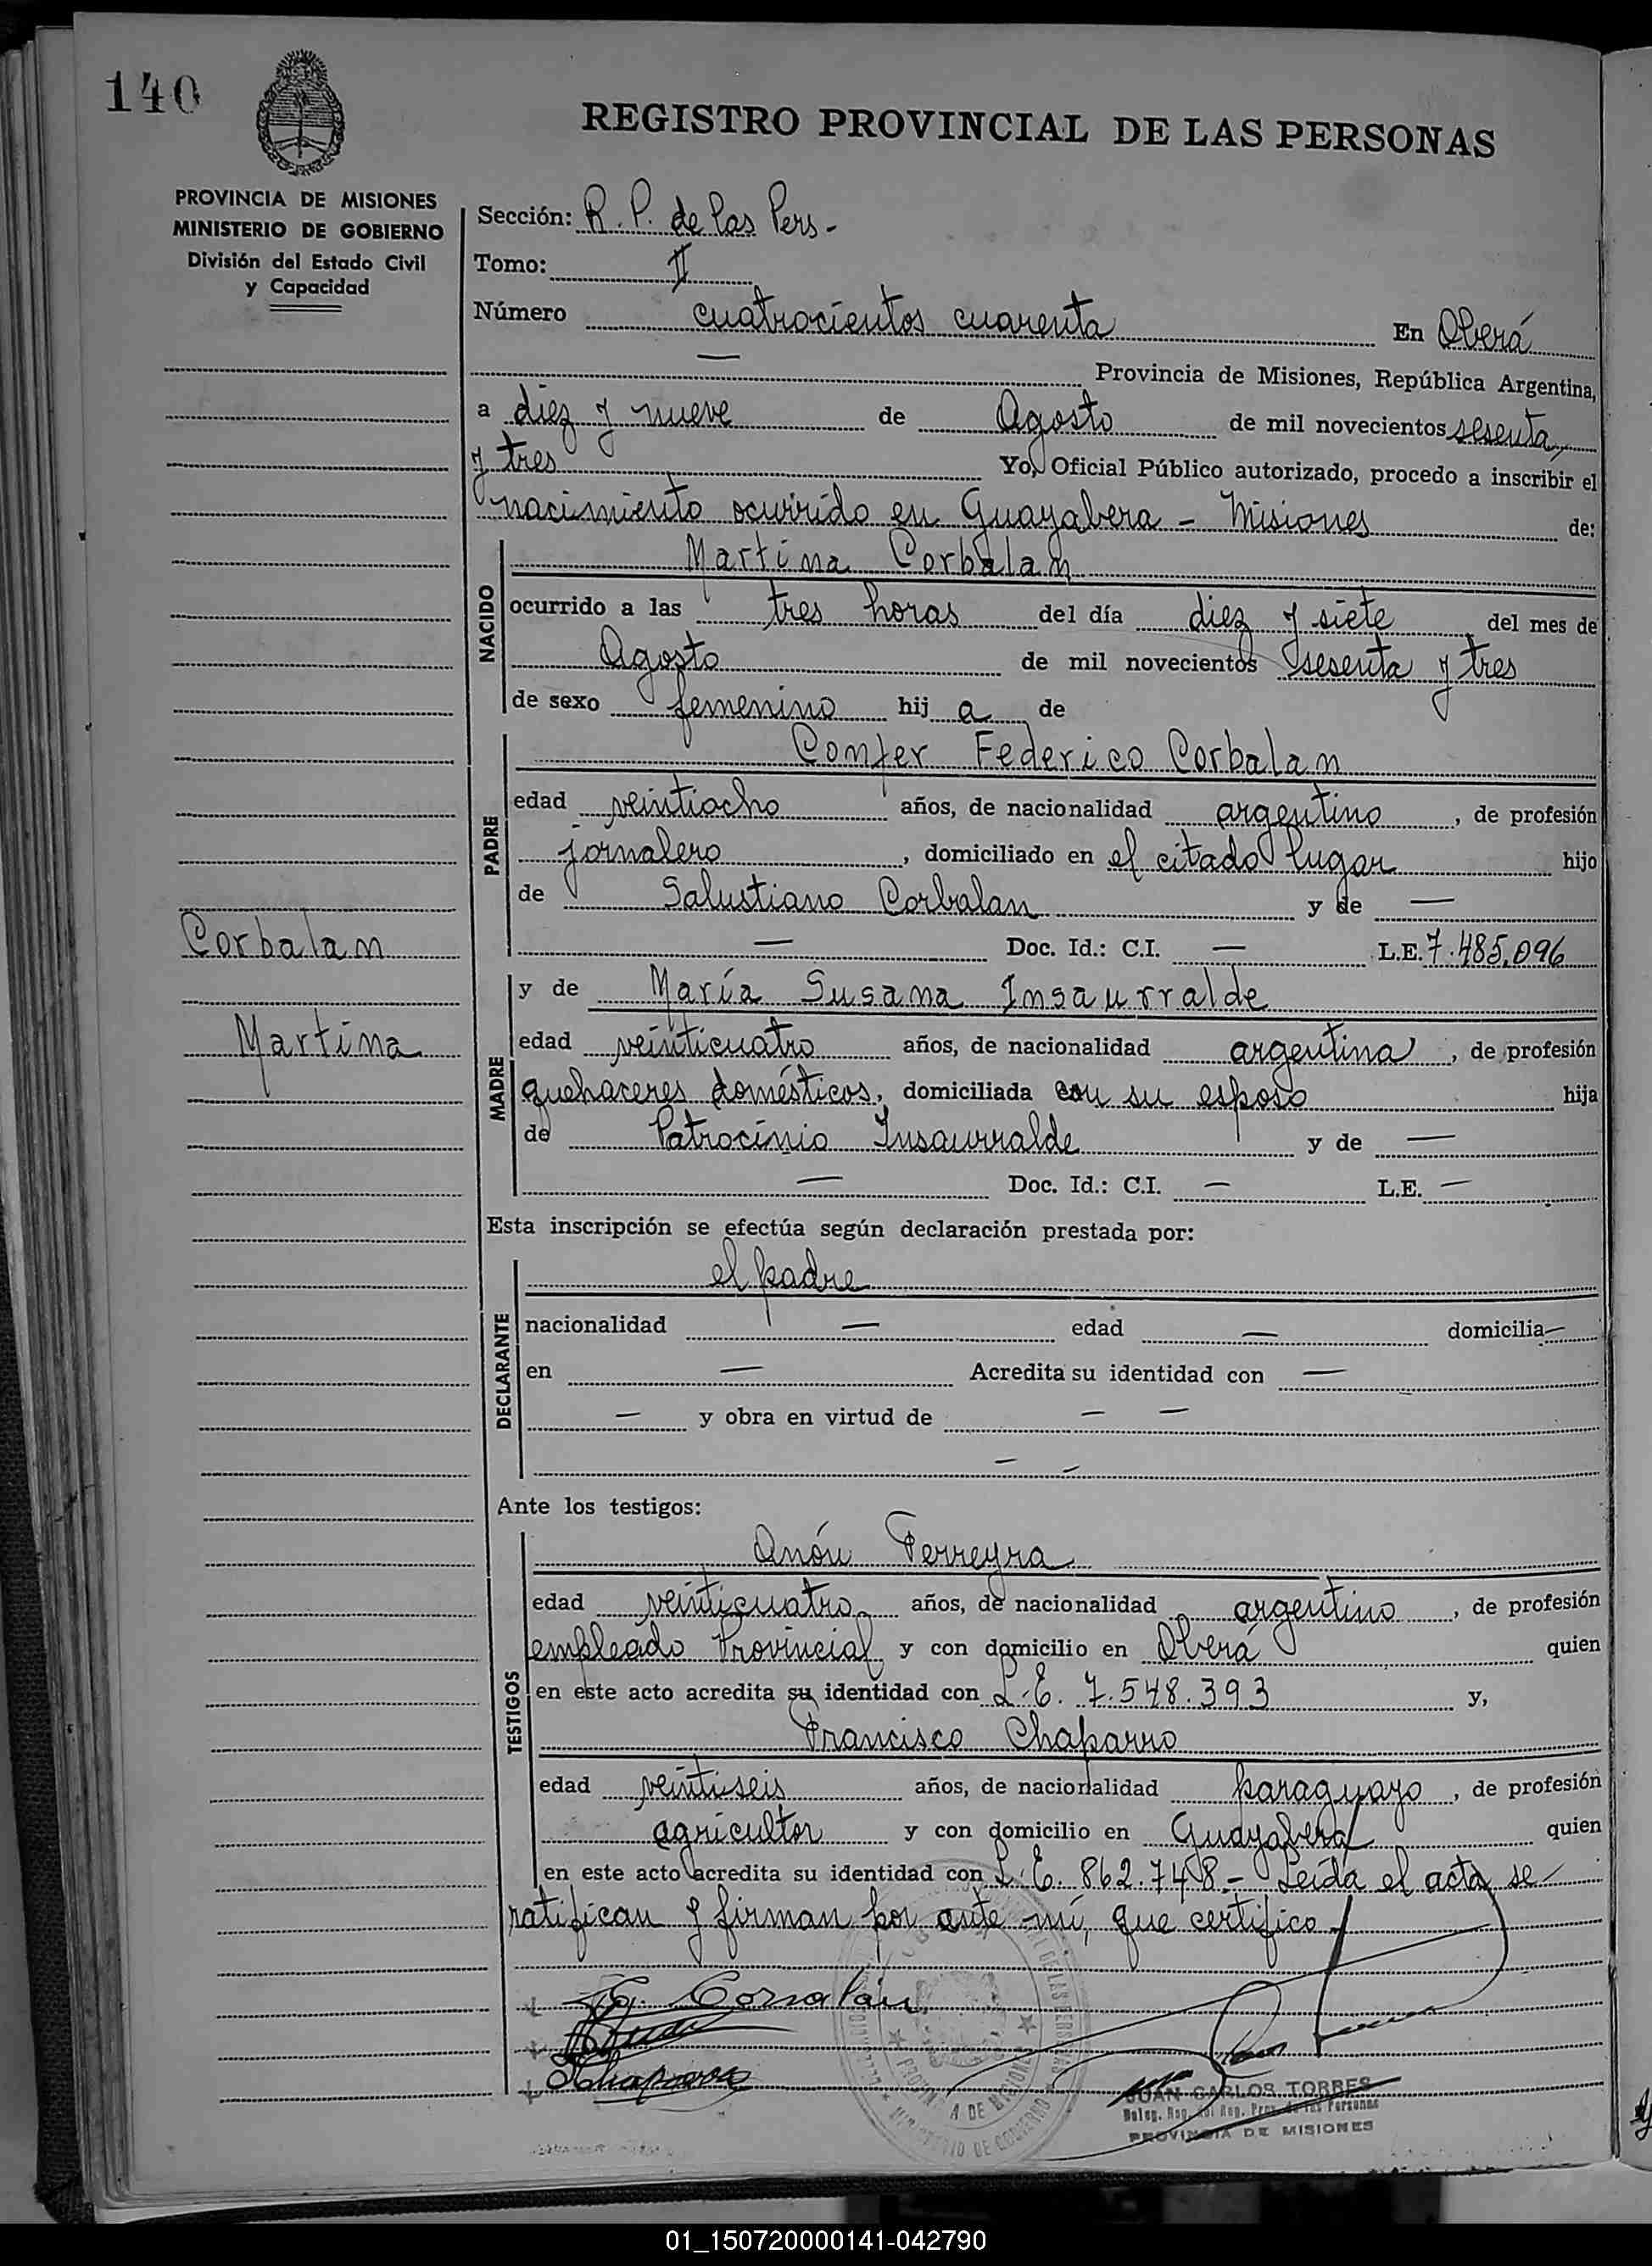 140
REGISTRO PROVINCIAL DE LAS PERSONAS
PROVINCIA DE MISIONES
MINISTERIO DE GOBIERNO
División del Estado Civil
y Capacidad
Sección: R. P. de las Pers -
Tomo: II
Número cuatrocientos cuarenta En Oberá
— Provincia de Misiones, República Argentina,
a diez y nueve de Agosto de mil novecientos sesenta
y tres Yo, Oficial Público autorizado, procedo a inscribir el
nacimiento ocurrido en Guayabera - Misiones de:
NACIDO
Martina Corbalan
ocurrido a las tres horas del día diez y siete del mes de
Agosto de mil novecientos sesenta y tres
de sexo femenino hij a de
PADRE
Confer Federico Corbalan
edad veintiocho años, de nacionalidad argentino, de profesión
jornalero, domiciliado en el citado lugar hijo
de Salustiano Corbalan y de —
— Doc. Id.: C.I. — L.E. 7.485.096
Corbalan
Martina
MADRE
y de María Susana Insaurralde
edad veinticuatro años, de nacionalidad argentina, de profesión
quehaceres domésticos, domiciliada con su esposo hija
de Patrocinio Insaurralde y de —
— Doc. Id.: C.I. — L.E. —
Esta inscripción se efectúa según declaración prestada por:
DECLARANTE
el padre
nacionalidad — edad — domicilia—
en — Acredita su identidad con —
— y obra en virtud de — —
— —
Ante los testigos:
TESTIGOS
Ferreyra
edad veinticuatro años, de nacionalidad argentino, de profesión
empleado Provincial y con domicilio en Oberá quien
en este acto acredita su identidad con L.E. 7.548.393 y,
Francisco Chaparro
edad veintiseis años, de nacionalidad paraguayo, de profesión
agricultor y con domicilio en Guayabera quien
en este acto acredita su identidad con L.E. 862.748.- Leída el acta se
ratifican y firman por ante mí, que certifico.-
JUAN CARLOS TORRES
PROVINCIA DE MISIONES
01_150720000141-042790